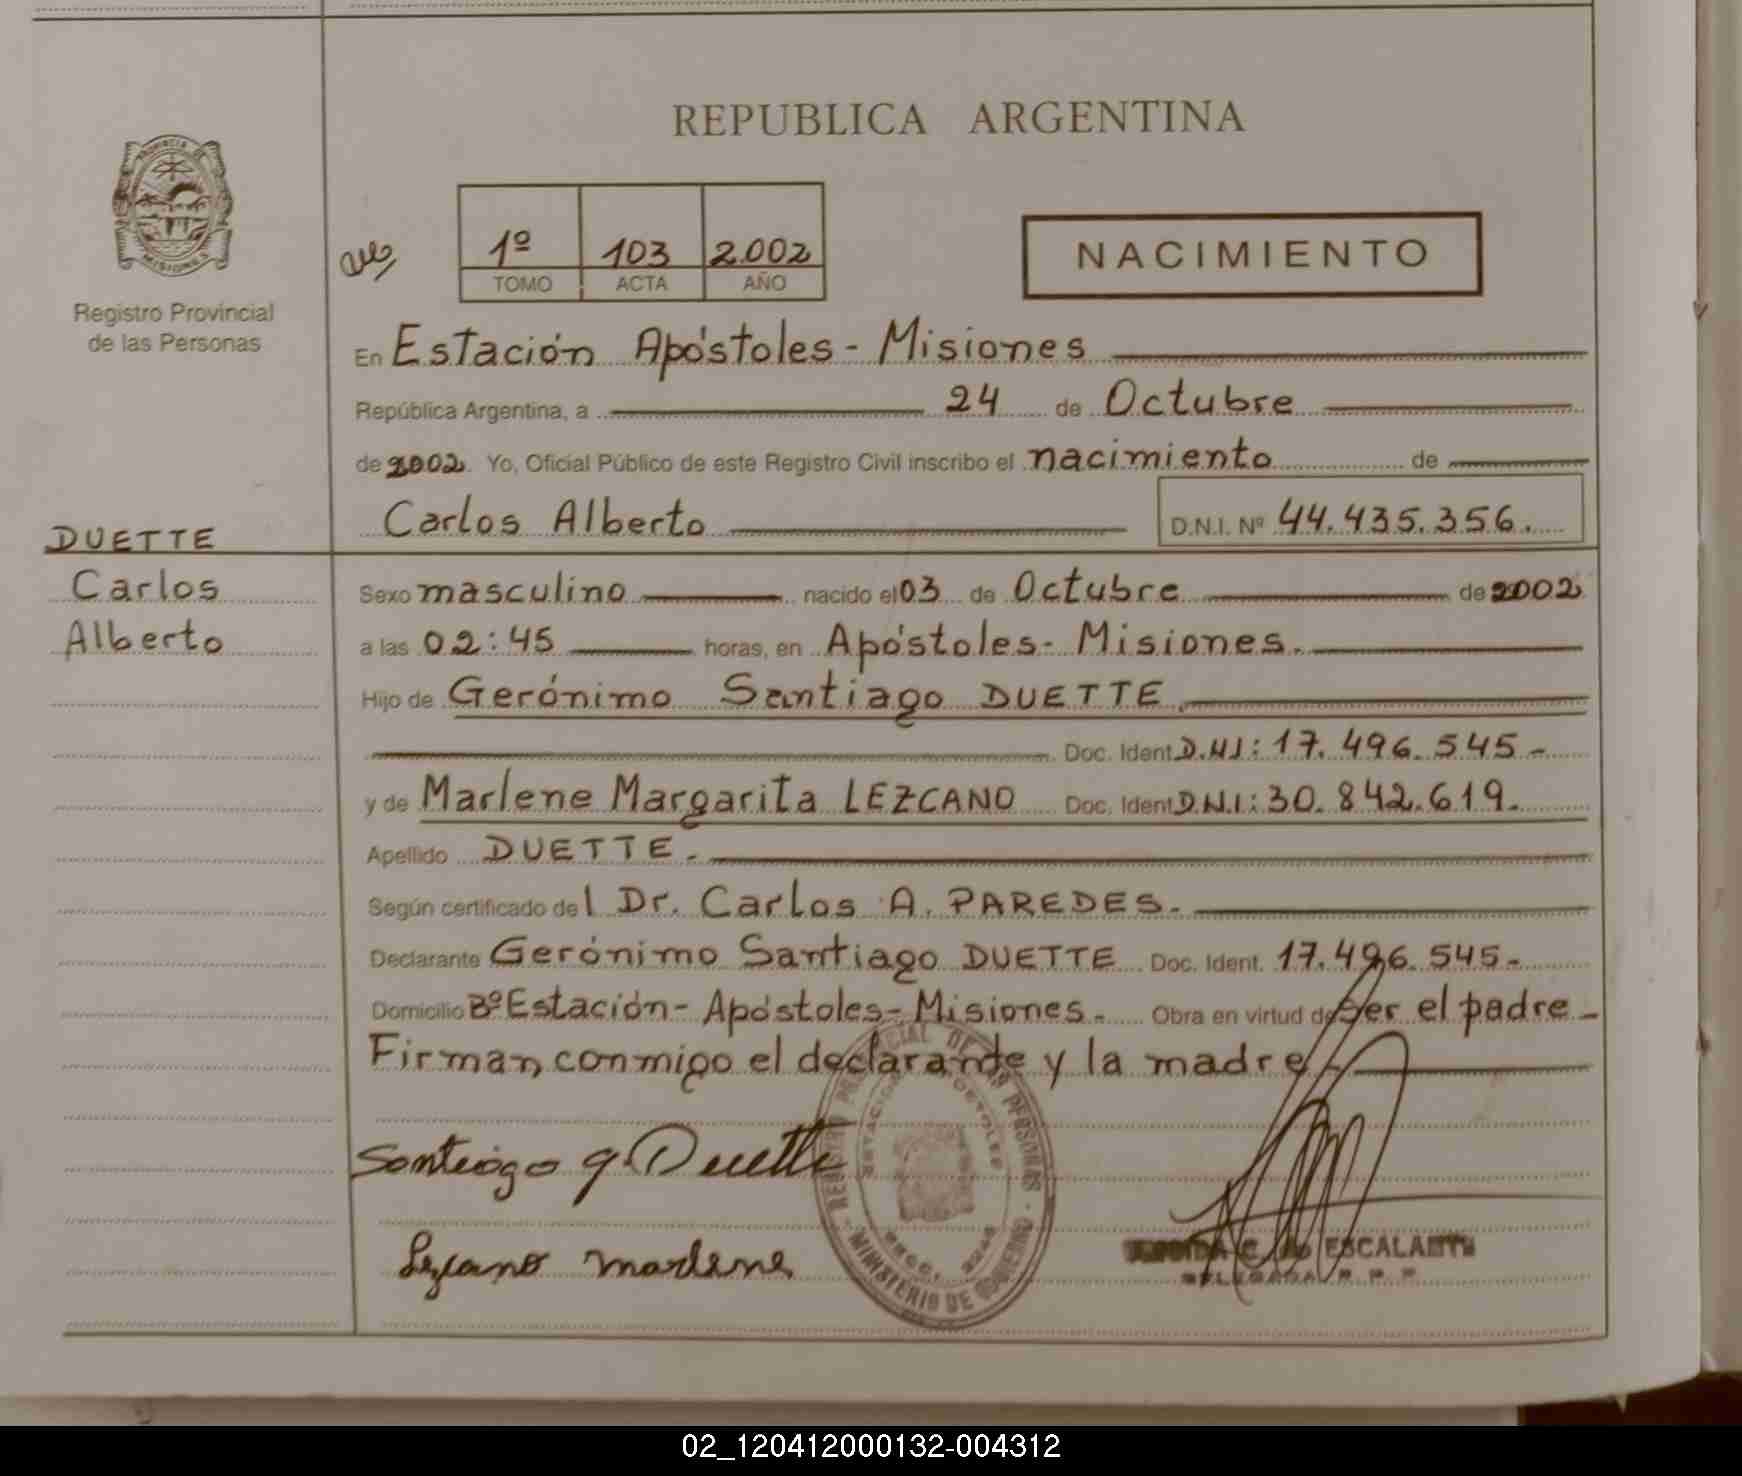 REPUBLICA ARGENTINA
PROVINCIA DE
MISIONES
Registro Provincial
de las Personas
1º 103 2.002
TOMO ACTA AÑO
NACIMIENTO
En Estación Apóstoles - Misiones
República Argentina, a 24 de Octubre
de 2002. Yo, Oficial Público de este Registro Civil inscribo el nacimiento de
Carlos Alberto D.N.I. Nº 44.435.356.
DUETTE
Carlos
Alberto
Sexo masculino nacido el 03 de Octubre de 2002
a las 02:45 horas, en Apóstoles - Misiones.
Hijo de Gerónimo Santiago DUETTE
Doc. Ident. D.N.I: 17.496.545-
y de Marlene Margarita LEZCANO Doc. Ident. D.N.I: 30.842.619.
Apellido DUETTE.
Según certificado del Dr. Carlos A. PAREDES.
Declarante Gerónimo Santiago DUETTE Doc. Ident. 17.496.545-
Domicilio Bº Estación - Apóstoles - Misiones. Obra en virtud de ser el padre -
Firman conmigo el declarante y la madre
Santiago g. Duette
Lezcano Marlene
MINISTERIO DE GOBIERNO
ESCALANTE
DELEGADA R. P. P.
02_120412000132-004312